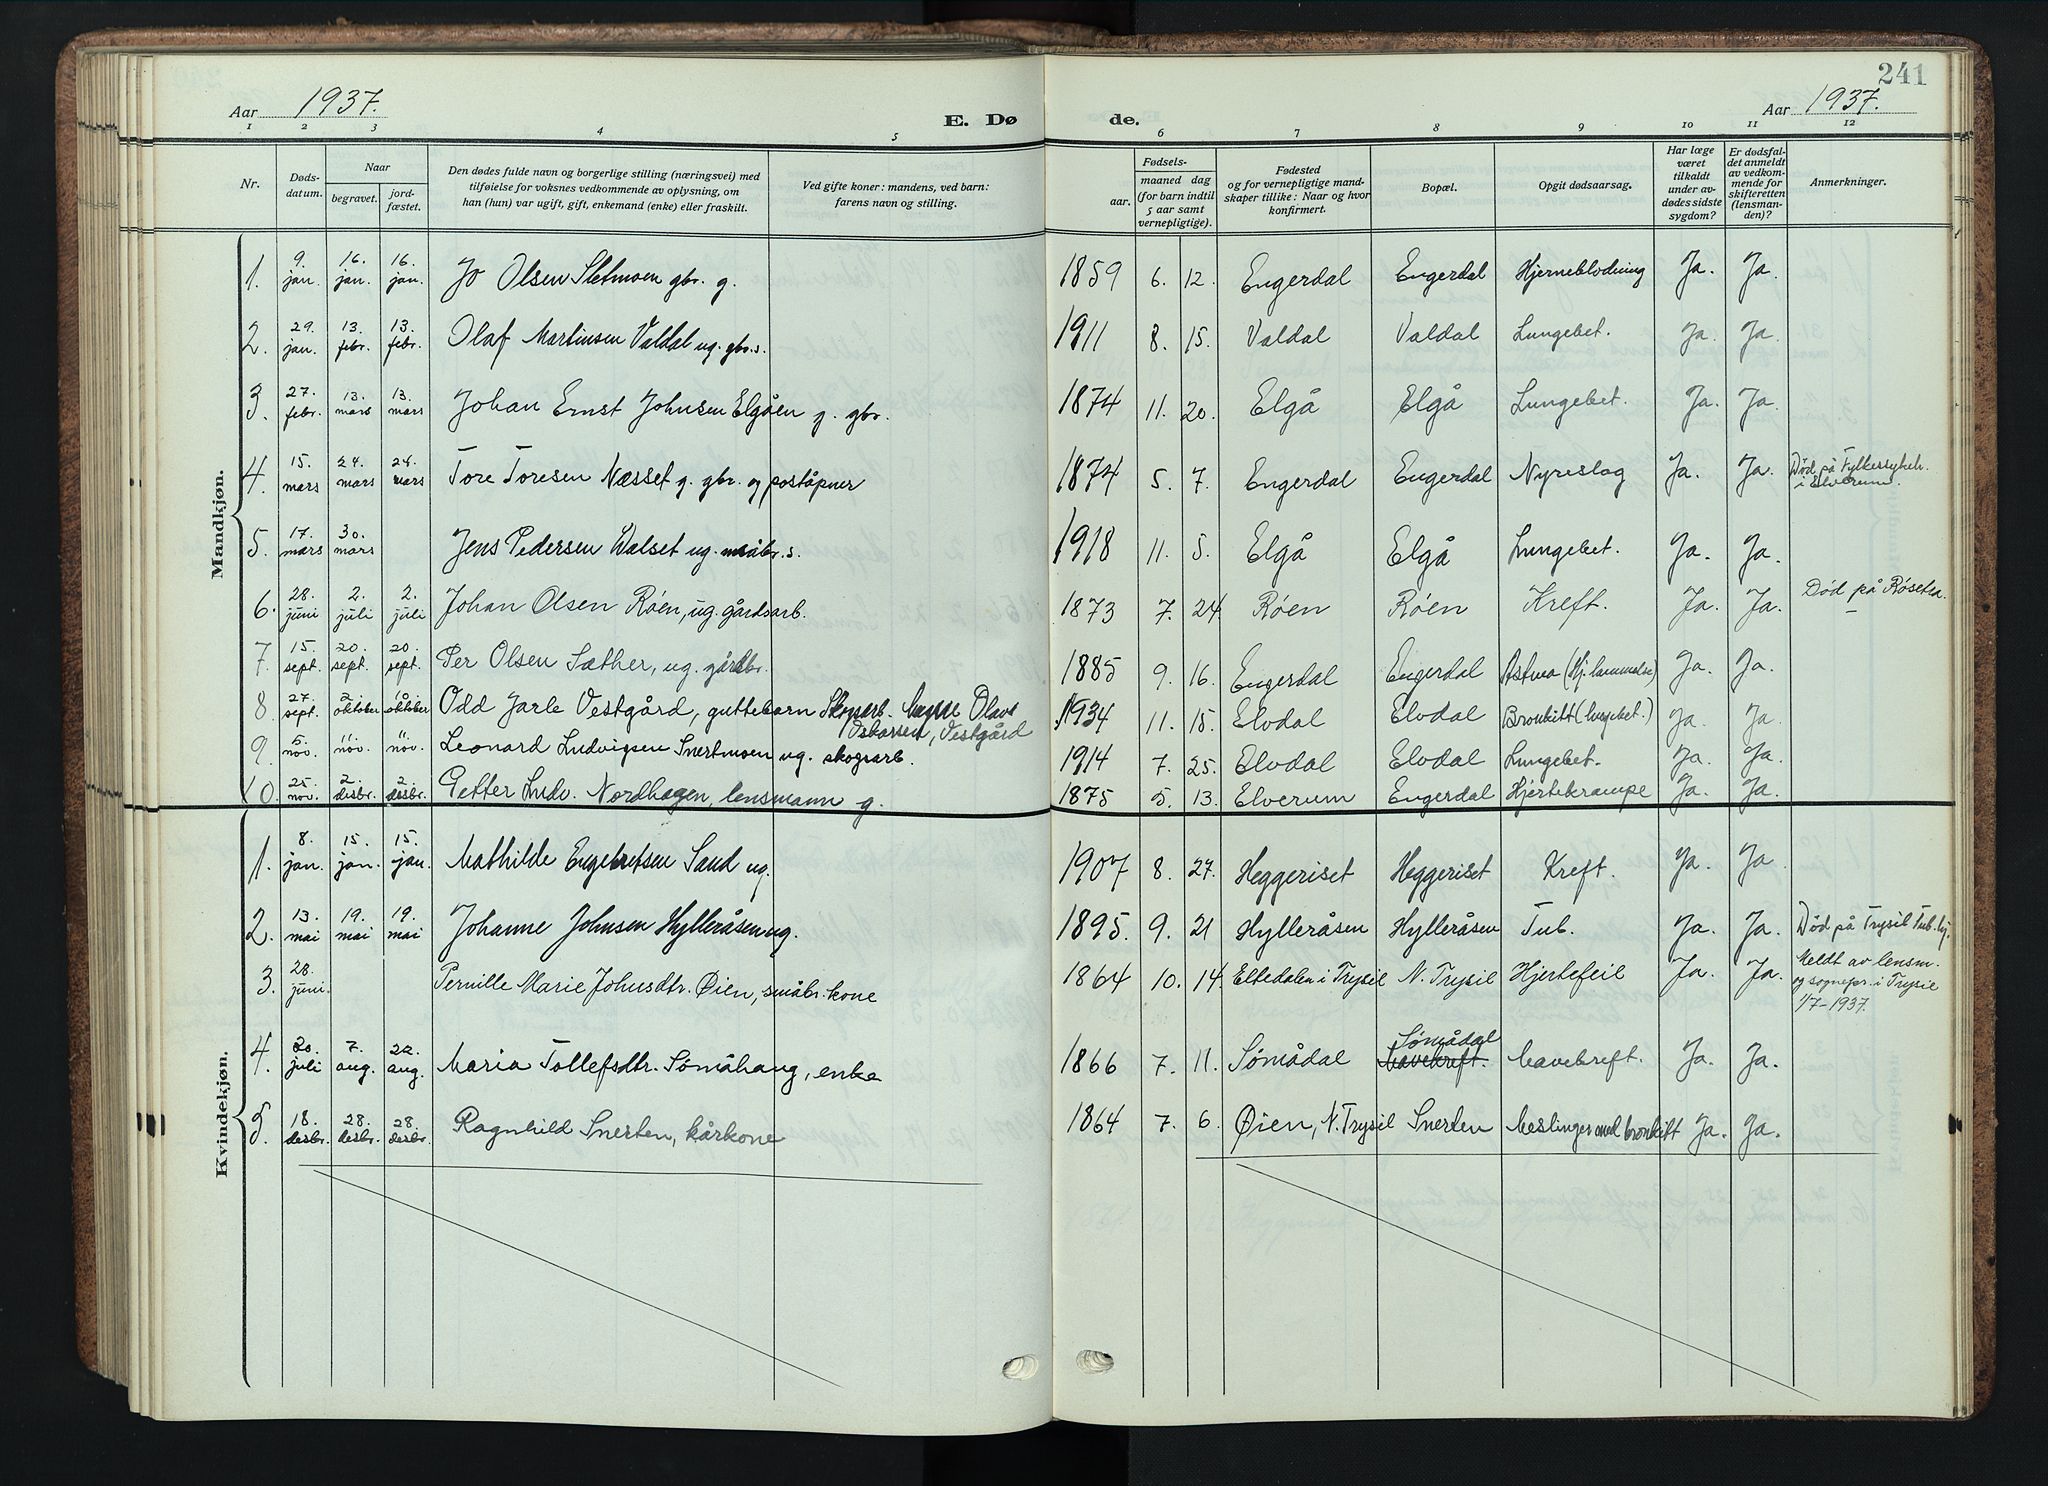 241
Aar 1937. E. Dø de. Aar 1937.
1 2 3 4 5 6 7 8 9 10 11 12
Nr. Dødsdatum. Naar begravet. jordfæstet. Den dødes fulde navn og borgerlige stilling (næringsvei) med tilføielse for voksnes vedkommende av oplysning, om han (hun) var ugift, gift, enkemand (enke) eller fraskilt. Ved gifte koner: mandens, ved barn: farens navn og stilling. Fødsels- aar. maaned dag (for barn indtil 5 aar samt vernepligtige). Fødested og for vernepligtige mandskaper tillike: Naar og hvor konfirmert. Bopæl. Opgit dødsaarsag. Har læge været tilkaldt under avdødes sidste sygdom? Er dødsfaldet anmeldt av vedkommende for skifteretten (lensmanden)? Anmerkninger.
Mandkjøn.
1. 9. jan. 16. jan. 16. jan. Jo Olsen Sletmoen gbr. g. 1859 6. 12. Engerdal Engerdal Hjerneblødning Ja. Ja.
2. 29. jan. 13. febr. 13. febr. Olaf Martinsen Valdal ug. gbr.s. 1911 8. 15. Valdal Valdal Lungebet. Ja. Ja.
3. 27. febr. 13. mars 13. mars Johan Ernst Johnsen Elgåen g. gbr. 1874 11. 20. Elgå Elgå Lungebet. Ja. Ja.
4. 15. mars 24. mars 24. mars Tore Toresen Næsset g. gbr. og poståpner 1874 5. 7. Engerdal Engerdal Nyreslag Ja. Ja. Død på Fylkessykeh. i Elverum.
5. 17. mars 30. mars Jens Pedersen Walset ug. småbr.s. 1918 11. 5. Elgå Elgå Lungebet. Ja. Ja.
6. 28. juni 2. juli 2. juli Johan Olsen Røen, ug. gårdsarb. 1873 7. 24. Røen Røen Kreft. Ja. Ja. Død på Røsetra.
7. 15. sept. 20. sept. 20. sept. Per Olsen Sæther, ug. gårdbr. 1885 9. 16. Engerdal Engerdal Astma (Hj. lammelse) Ja. Ja.
8. 27. sept. 2. oktober 10. oktober Odd Jarle Vestgård, guttebarn Skogsarb. Magne Olav Oskarsen, Vestgård 1934 11. 15. Elvdal Elvdal Bronkitt (lungebet.) Ja. Ja.
9. 5. nov. 11. nov. 11. nov. Leonard Ludvigsen Snertmoen ug. skogsarb. 1914 7. 25. Elvdal Elvdal Lungebet. Ja. Ja.
10. 25. nov. 2. desbr. 2. desbr. Petter Ludv. Nordhagen, lensmann g. 1875 5. 13. Elverum Engerdal Hjertekrampe Ja. Ja.
Kvindekjøn.
1. 8. jan. 15. jan. 15. jan. Mathilde Engebretsen Sand ug. 1907 8. 27. Heggeriset Heggeriset Kreft. Ja. Ja.
2. 13. mai 19. mai 19. mai Johanne Johnsen Hylleråsen ug. 1895. 9. 21 Hylleråsen Hylleråsen Tub. Ja. Ja. Død på Trysil Tub.hj.
3. 28. juni. Pernille Marie Johnsdtr. Øien, småbr. kone 1864 10. 14. Eltedalen i Trysil N. Trysil Hjertefeil Ja. Ja. Meldt av lensm. og sognepr. i Trysil 1/7-1937.
4. 20. juli 7. aug. 22. aug. Maria Tollefsdtr. Sømåhaug, enke 1866 7. 11. Sømådal Sømådal Mavekreft. Mavekreft. Ja. Ja.
5. 18. desbr. 28. desbr. 28. desbr. Ragnhild Snerten, kårkone 1864 7. 6. Øien, N. Trysil Snerten Meslinger med bronkitt Ja. Ja.